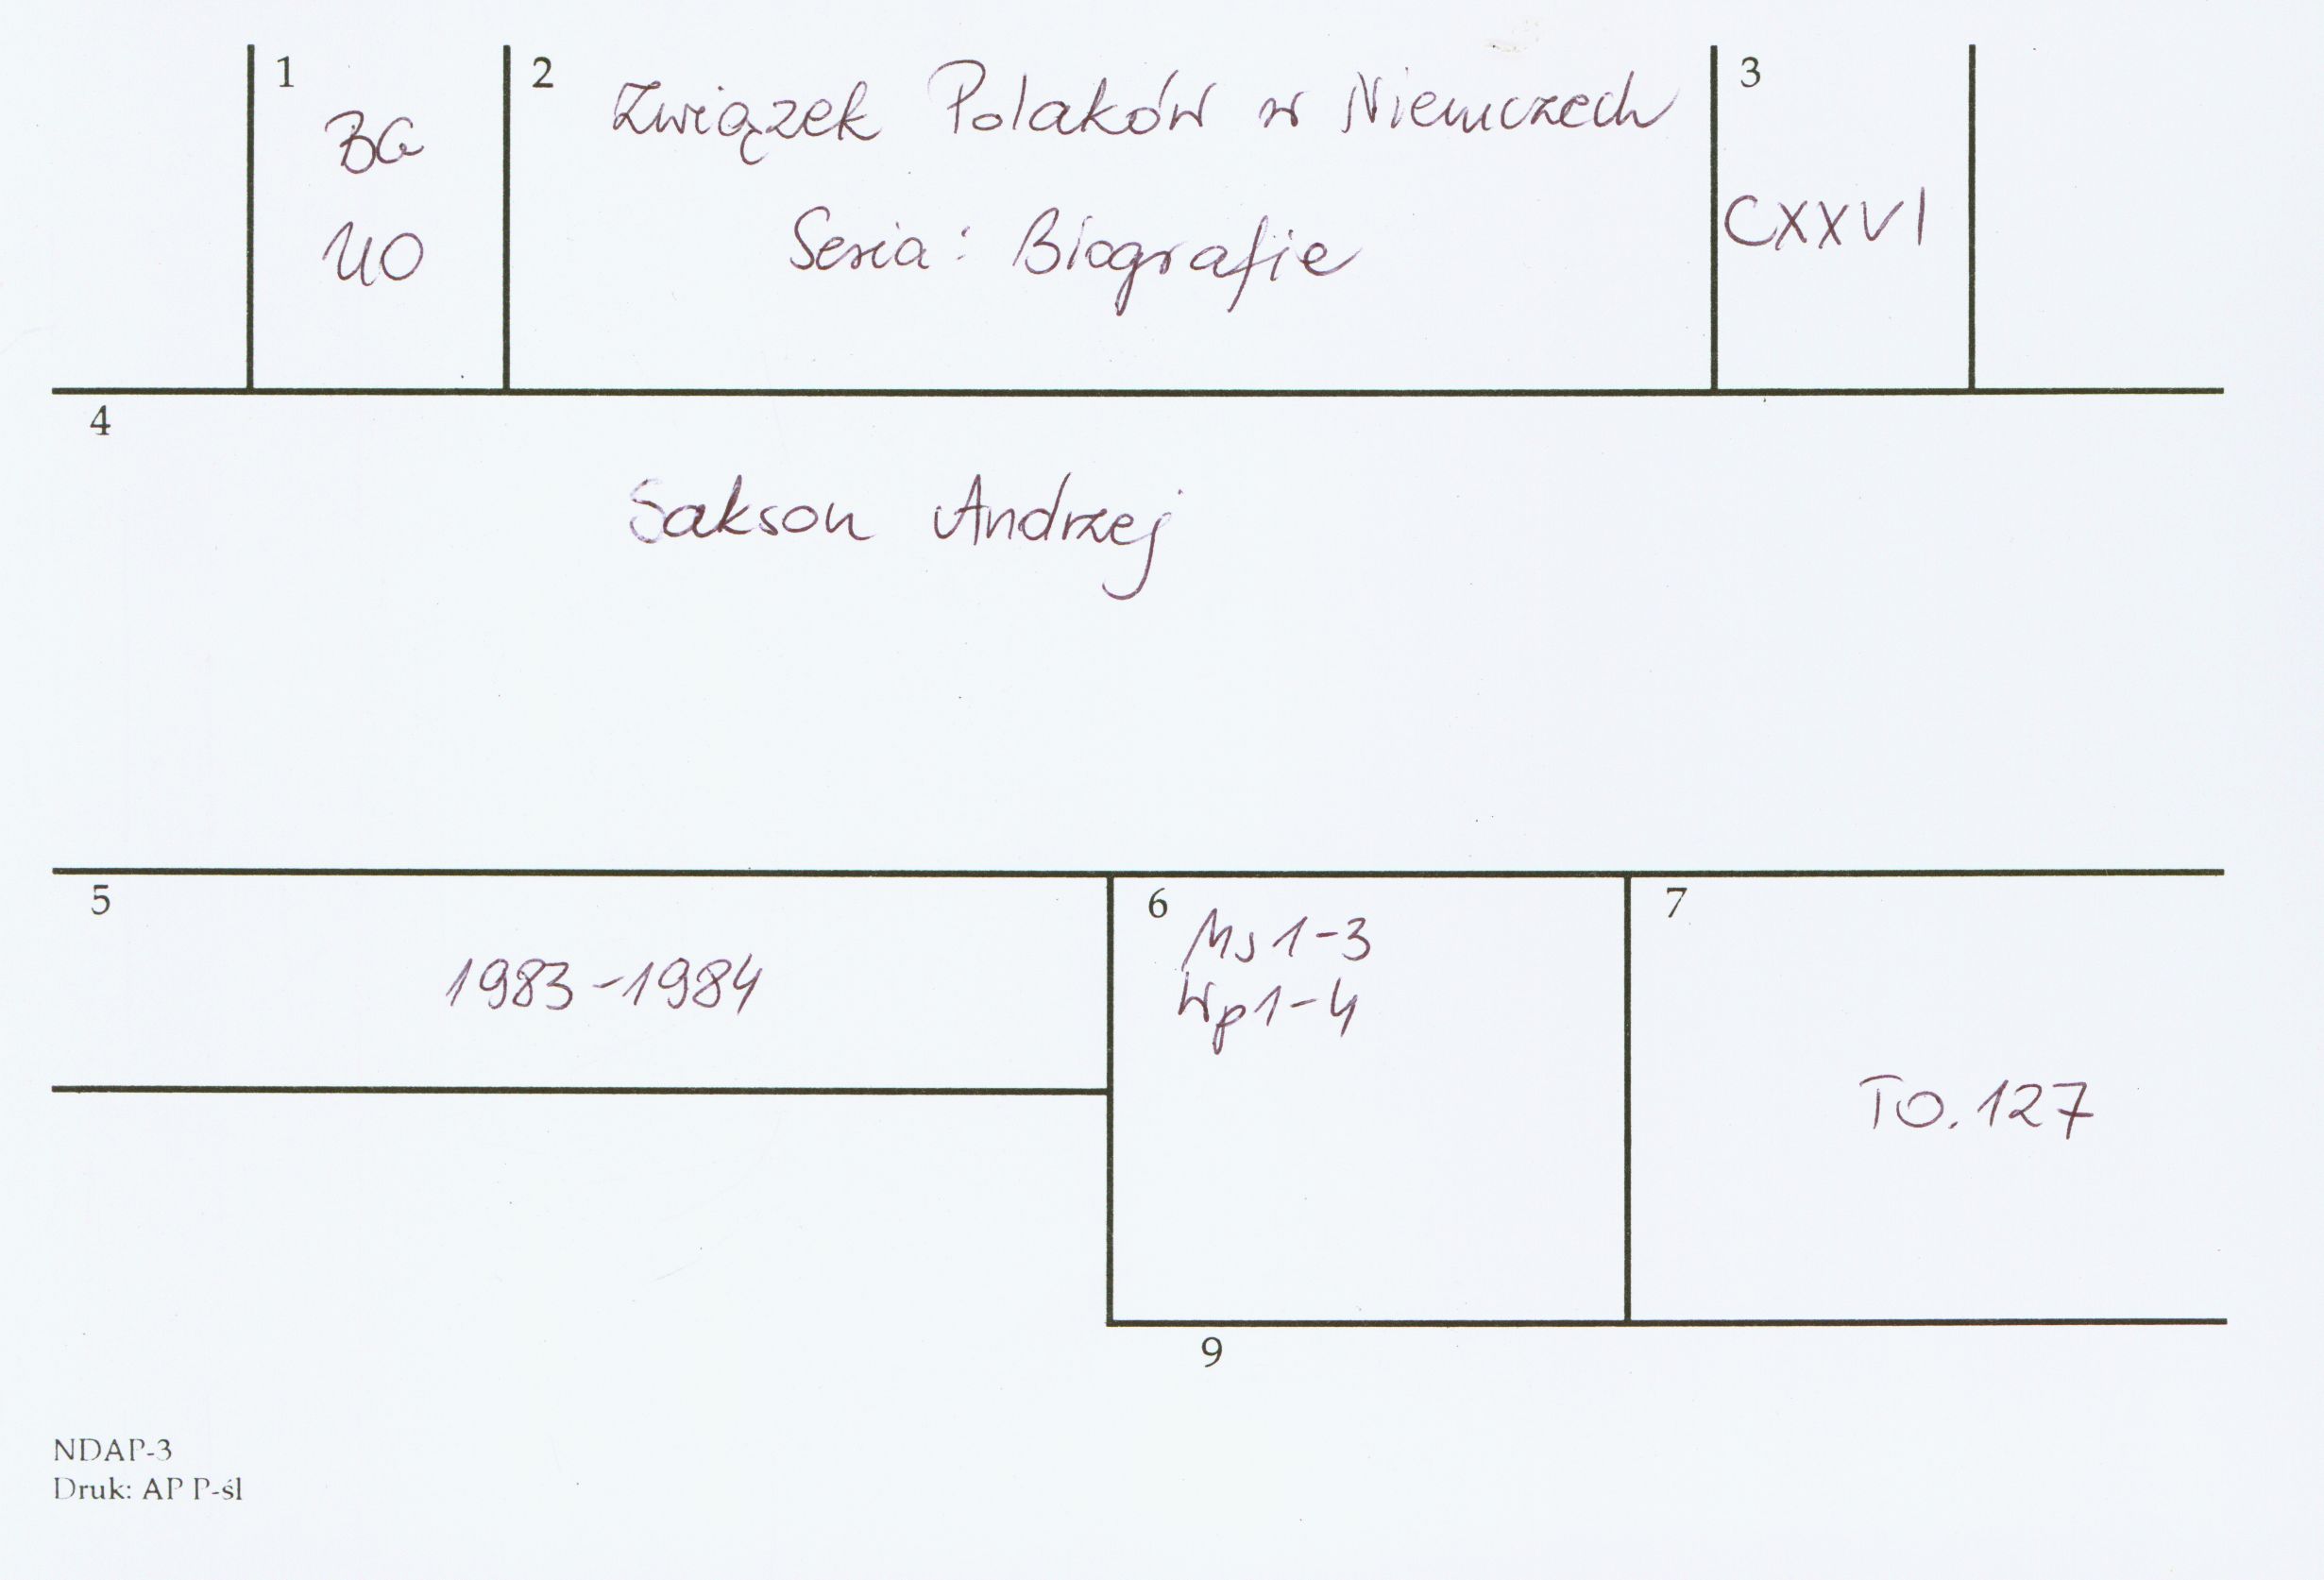 1
BG
UO
2
Związek Polaków w Niemczech
Seria: Biografie
3
CXXVI
4
Sakson Andrzej
5
1983-1984
6
Ms 1-3
Wp 1-4
7
TO. 127
9
NDAP-3
Druk: AP P-śl